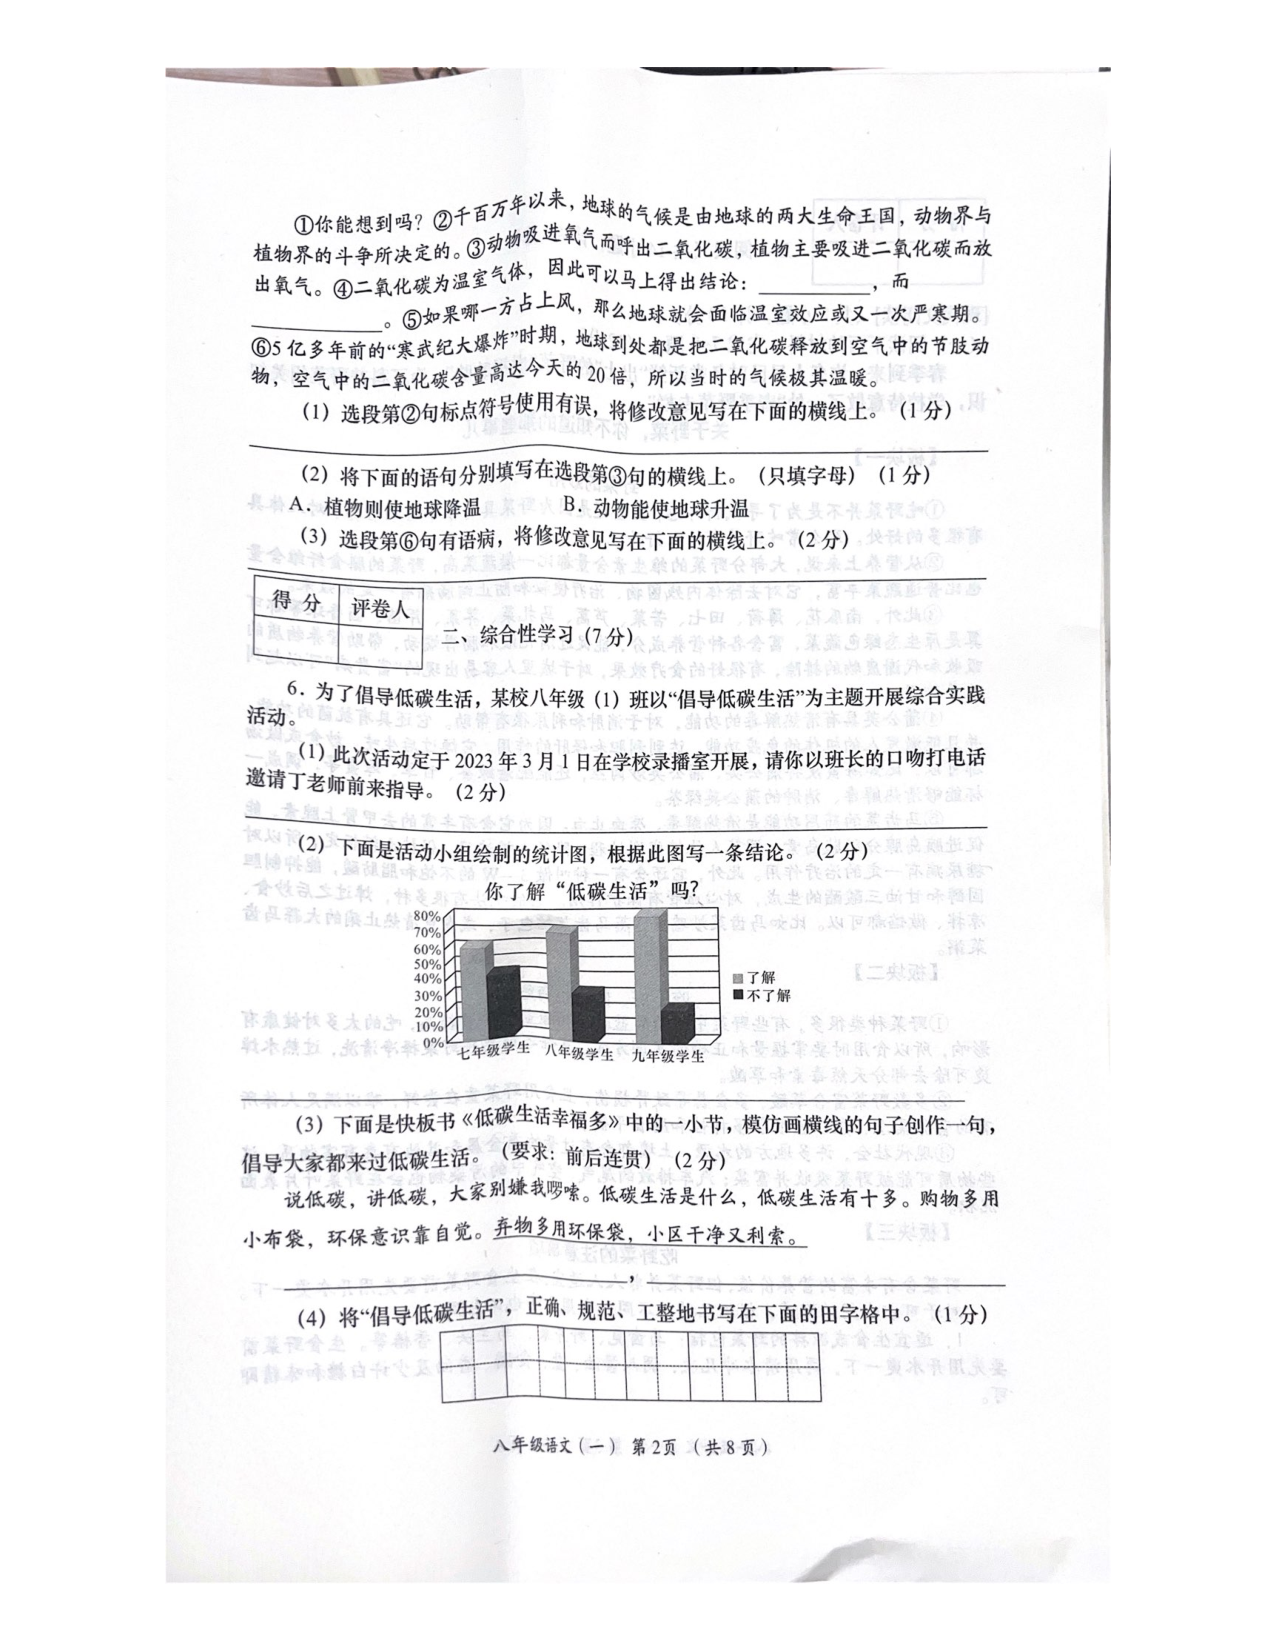 ①你能想到吗？②千百万年以来，地球的气候是由地球的两大生命王国，动物界与
植物界的斗争所决定的。③动物吸进氧气而呼出二氧化碳，植物主要吸进二氧化碳而放
出氧气。④二氧化碳为温室气体，因此可以马上得出结论：__________，而
__________。⑤如果哪一方占上风，那么地球就会面临温室效应或又一次严寒期。
⑥5亿多年前的“寒武纪大爆炸”时期，地球到处都是把二氧化碳释放到空气中的节肢动
物，空气中的二氧化碳含量高达今天的20倍，所以当时的气候极其温暖。
（1）选段第②句标点符号使用有误，将修改意见写在下面的横线上。（1分）
（2）将下面的语句分别填写在选段第③句的横线上。（只填字母）（1分）
A．植物则使地球降温 B．动物能使地球升温
（3）选段第⑥句有语病，将修改意见写在下面的横线上。（2分）
得 分 评卷人
二、综合性学习（7分）
6．为了倡导低碳生活，某校八年级（1）班以“倡导低碳生活”为主题开展综合实践
活动。
（1）此次活动定于2023年3月1日在学校录播室开展，请你以班长的口吻打电话
邀请丁老师前来指导。（2分）
（2）下面是活动小组绘制的统计图，根据此图写一条结论。（2分）
你了解“低碳生活”吗？
80%
70%
60%
50%
40%
30%
20%
10%
0%
了解
不了解
七年级学生 八年级学生 九年级学生
（3）下面是快板书《低碳生活幸福多》中的一小节，模仿画横线的句子创作一句，
倡导大家都来过低碳生活。（要求：前后连贯）（2分）
说低碳，讲低碳，大家别嫌我啰嗦。低碳生活是什么，低碳生活有十多。购物多用
小布袋，环保意识靠自觉。弃物多用环保袋，小区干净又利索。
__________，__________
（4）将“倡导低碳生活”，正确、规范、工整地书写在下面的田字格中。（1分）
八年级语文（一） 第2页 （共8页）